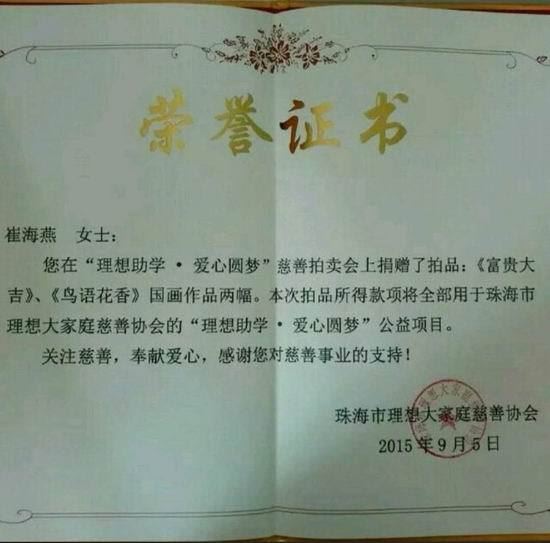 荣誉证书
崔海燕 女士：
您在“理想助学·爱心圆梦”慈善拍卖会上捐赠了拍品：《富贵大
吉》、《鸟语花香》国画作品两幅。本次拍品所得款项将全部用于珠海市
理想大家庭慈善协会的“理想助学·爱心圆梦”公益项目。
关注慈善，奉献爱心，感谢您对慈善事业的支持！
珠海市理想大家庭慈善协会
2015年9月5日